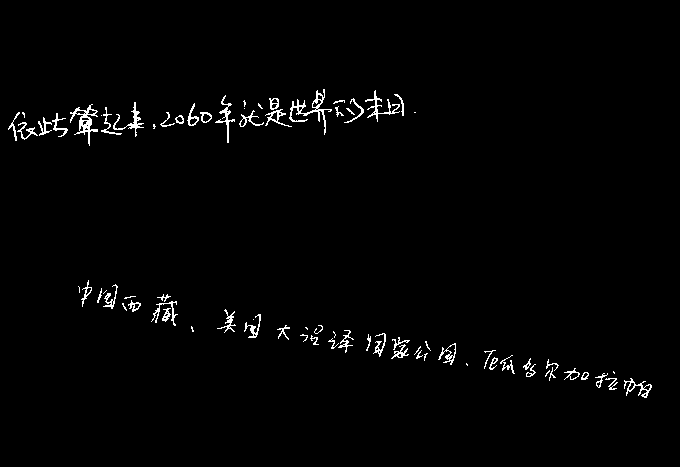 依此算起来,2060年就是世界的末日.
中国西藏、美国大沼泽国家公园、厄瓜多尔加拉帕